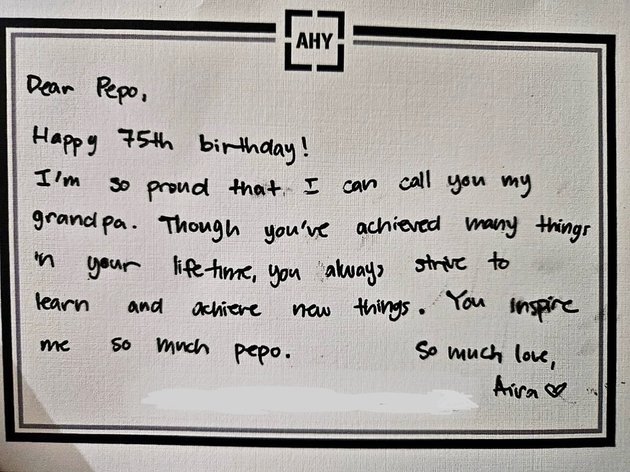 AHY
Dear Pepo,
Happy 75th birthday!
I'm so proud that I can call you my
grandpa. Though you've achieved many things
in your lifetime, you always strive to
learn and achieve new things. You inspire
me so much pepo.
So much love,
Aira ♡